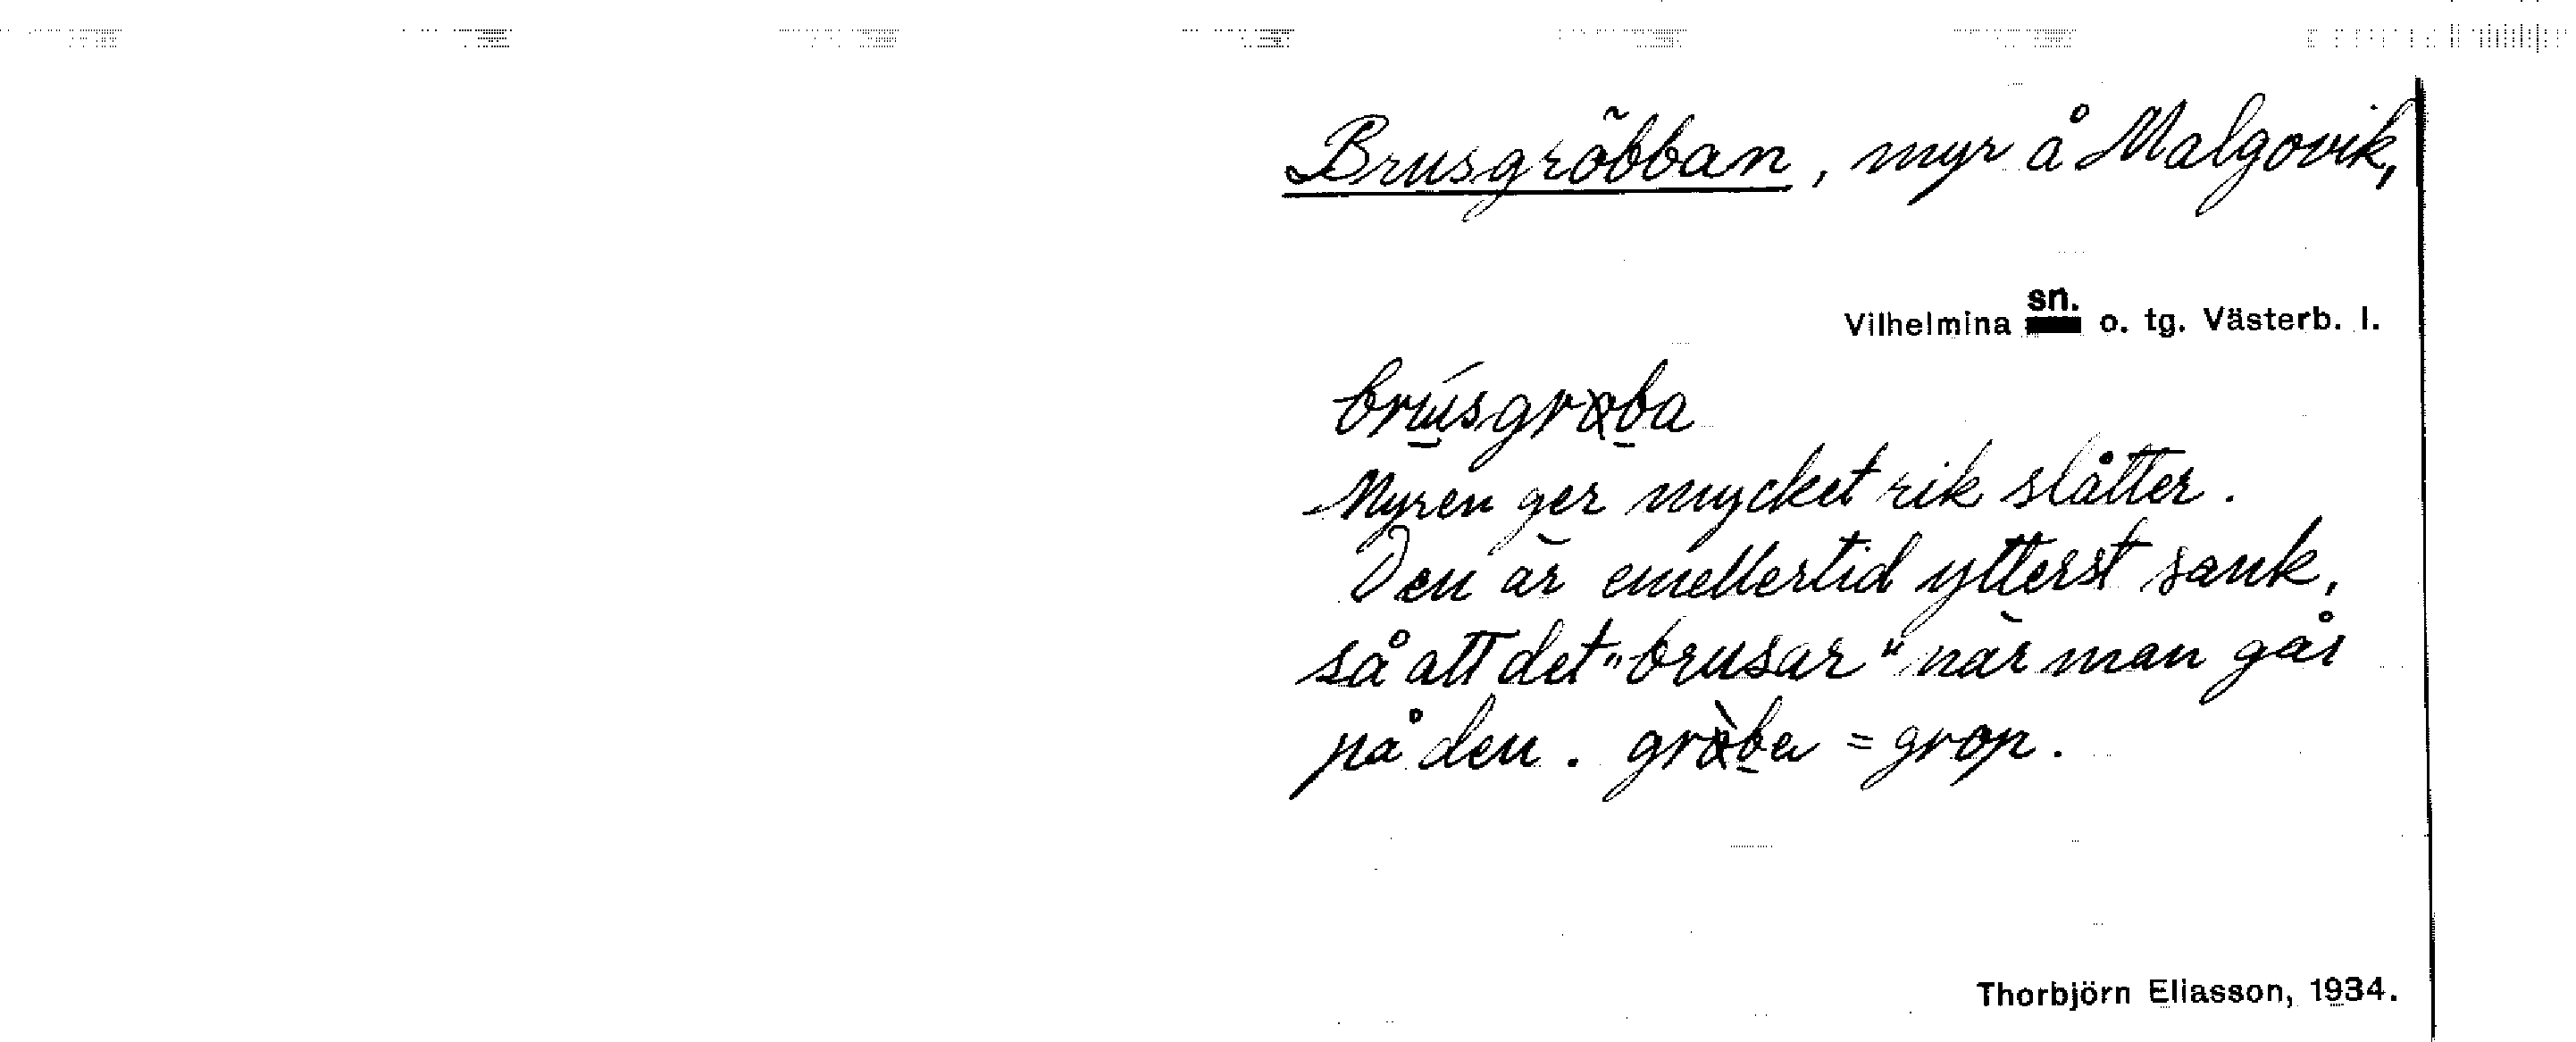 Brusgrõbban, myr å Malgovik,
sn.
Vilhelmina o. tg. Västerb. l.
Myren ger mycket rik slåtter.
Den är emellertid ytterst sank,
så att det "brusar" när man går
på den. = grop.
Thorbjörn Eliasson, 1934.